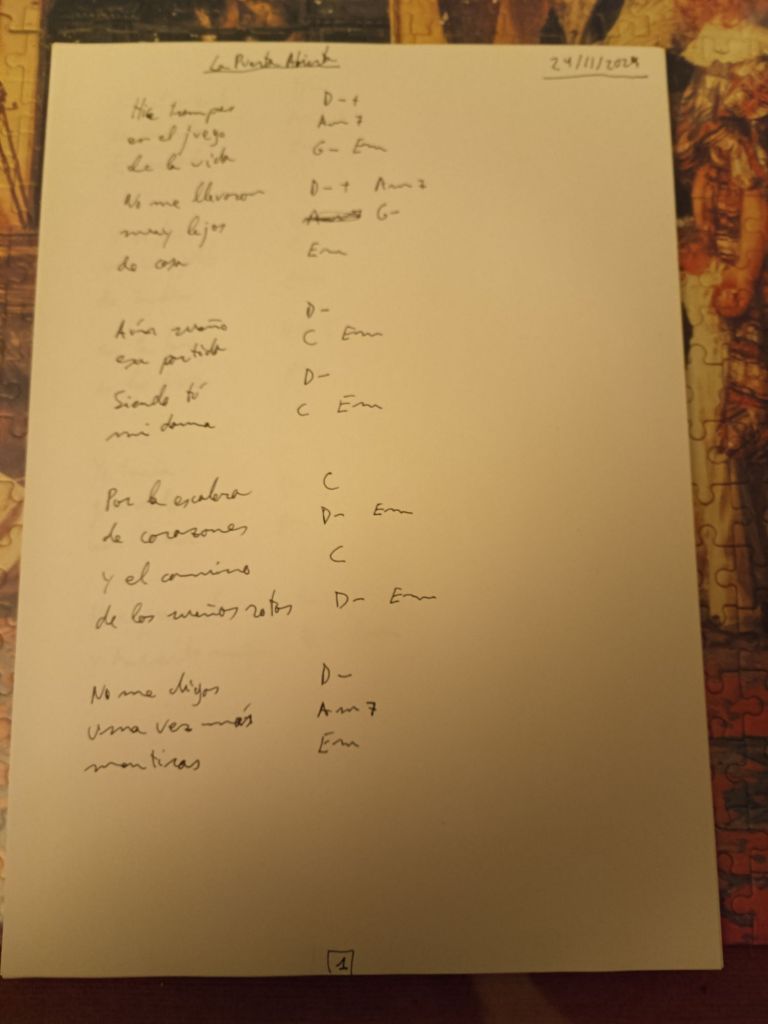 La Puerta Abierta 24/11/2024
Hice trampas D-+
en el juego Am7
de la vida G- Em
No me llevaron D-+ Am7
muy lejos G-
de casa Em
Aún sueño D-
esa partida C Em
Siendo tú D-
mi dama C Em
Por la escalera C
de corazones D- Em
y el camino C
de los sueños rotos D- Em
No me digas D-
una vez más Am7
mentiras Em
1